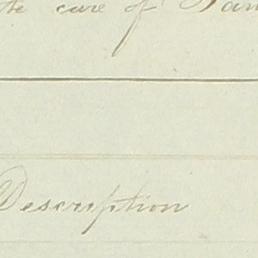 the care of
Description